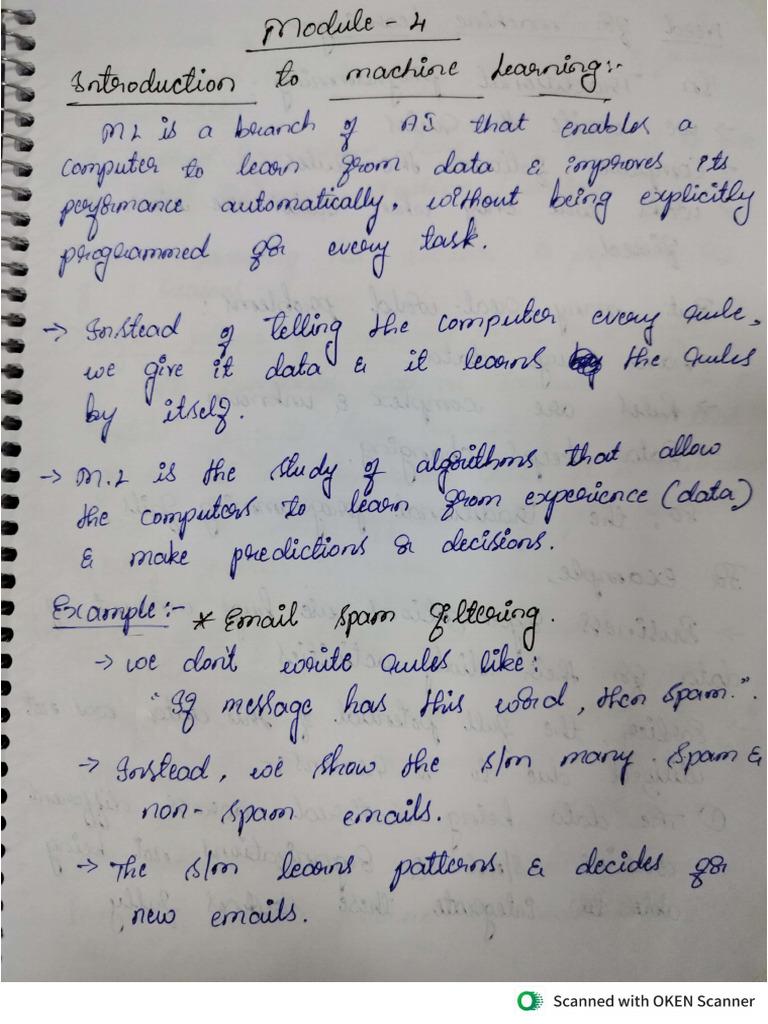 Module - 4
Introduction to machine Learning:-
ML is a branch of AI that enables a
computer to learn from data & improves its
performance automatically, without being explicitly
programmed for every task.
→ Instead of telling the computer every rule,
we give it data & it learns the rules
by itself.
→ M.L is the study of algorithms that allow
the computers to learn from experience (data)
& make predictions or decisions.
Example:- * Email spam filtering.
→ we don't write rules like:
"If message has this word, then spam.".
→ Instead, we show the s/m many spam &
non-spam emails.
→ The s/m learns patterns & decides for
new emails.
Scanned with OKEN Scanner